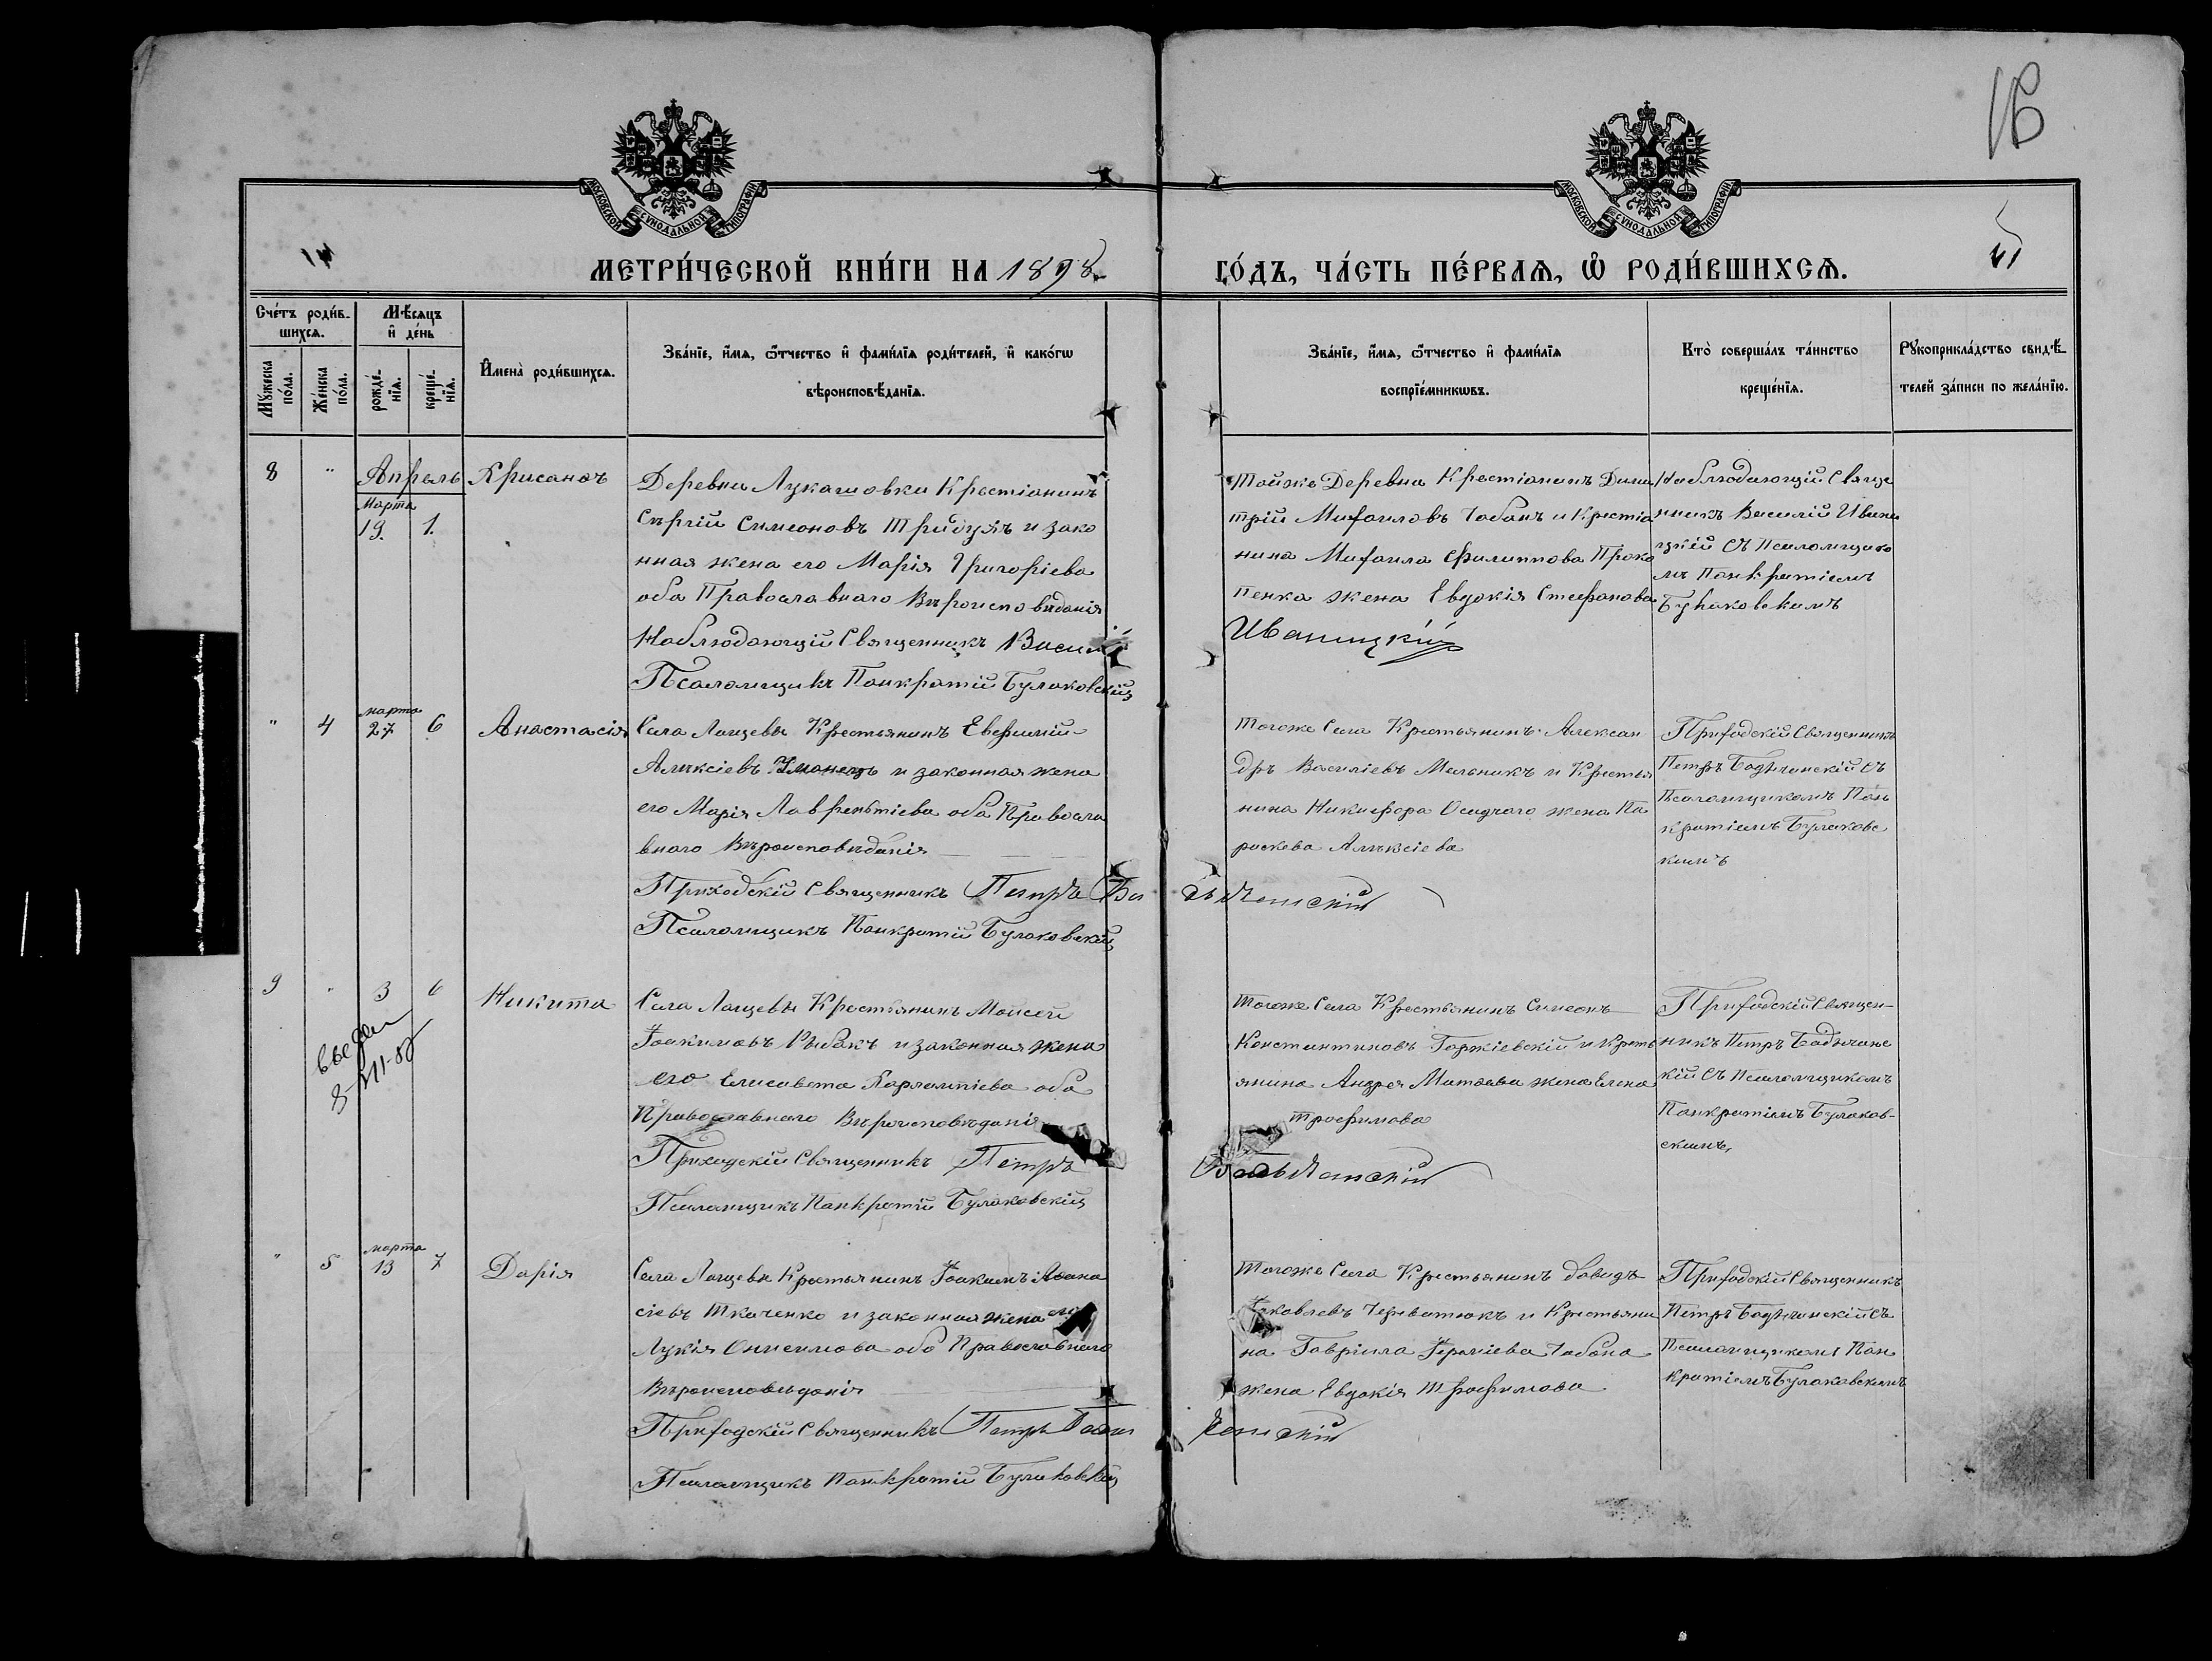 16
МОСКОВСКОЙ СУНОДАЛЬНОЙ ТИПОГРАФІИ
МОСКОВСКОЙ СУНОДАЛЬНОЙ ТИПОГРАФІИ
МЕТРИ́ЧЕСКОЙ КНИ́ГИ НА 1898
ГО́ДЪ, ЧА́СТЬ ПЕ́РВАѦ, Ѡ҆ РОДИ́ВШИХСѦ.
Сче́тъ роди́в-
шихсѧ.
Мѣ́сѧцъ
и҆ де́нь
Мꙋ́жеска
по́ла.
Же́нска
по́ла.
рожде́-
нїѧ.
креще́-
нїѧ.
И҆мена̀ роди́вшихсѧ.
Зва́нїе, и҆́мѧ, ѻ҆́тчество и҆ фами́лїѧ роди́телей, и҆ како́гѡ
вѣроисповѣ́данїѧ.
Зва́нїе, и҆́мѧ, ѻ҆́тчество и҆ фами́лїѧ
воспрїе́мникѡвъ.
Кто̀ соверша́лъ та́инство
креще́нїѧ.
Рꙋкоприкла́дство свидѣ́-
телей за́писи по жела́нїю.
8 " Апрель
Марта
19. 1.
Хрисанъ
Деревни Лукашовки Крестіанинъ
Сергій Симеоновъ и зако
нная жена его Марія Григоріева
оба Православнаго Вѣроисповѣданія
Наблюдающій Священникъ Васил
Псаломщикъ Панкратій Булаковскій
Тойже Деревни Крестіанинъ Дими
трій Михаиловъ Чабанъ и Крестіа
нина Михаила Филиппова Проко
пенка жена Евдокія Стефанова
Иваницкій
Наблюдающій Свяще
нникъ Василій Ивани
цкій съ Псаломщико
мъ Панкратіемъ
Булаковскимъ
" 4 марта 27 6 Анастасія
Села Лащевы Крестьянинъ Евфимій
Алексіевъ Уманецъ и законная жена
его Марія Лаврентіева оба Правосла
внаго Вѣроисповѣданія
Приходскій Священникъ Петръ Ба
Псаломщикъ Панкратій Булаковскій
Тогоже Села Крестьянинъ Алексан
дръ Василіевъ Мельникъ и Крестья
нина Никифора Осадчаго жена Па
раскева Алексіева
дьянскій
Приходскій Священникъ
Петръ съ
Псаломщикомъ Пан
кратіемъ Булаковс
кимъ
9 " 3 6 Никита
Села Лащевы Крестьянинъ Моисей
Іоакимовъ Рыбакъ и законная жена
его Елисавета Харлампіева оба
Православнаго Вѣроисповѣданія
Приходскій Священникъ Петръ
Псаломщикъ Панкратій Булаковскій
Тогоже Села Крестьянинъ Симеонъ
Константиновъ и Кресть
янина Андрея жена Елена
Трофимова
Приходскій Священ-
никъ Петръ
кій съ Псаломщикомъ
Панкратіемъ Булаков-
скимъ
" 5 марта 13 7 Дарія
Села Лащевы Крестьянинъ Іоакимъ Афана
сіевъ Ткаченко и законная жена его
Лукія Онисимова оба Православнаго
Вѣроисповѣданія
Приходскій Священникъ Петръ
Псаломщикъ Панкратій Булаковскій
Тогоже Села Крестьянинъ Давидъ
Іаковлевъ Черватюкъ и Крестьяни
на Гавріила Чабана
жена Евдокія Трофимова
Приходскій Священникъ
Петръ съ
Псаломщикомъ Пан
кратіемъ Булаковскимъ